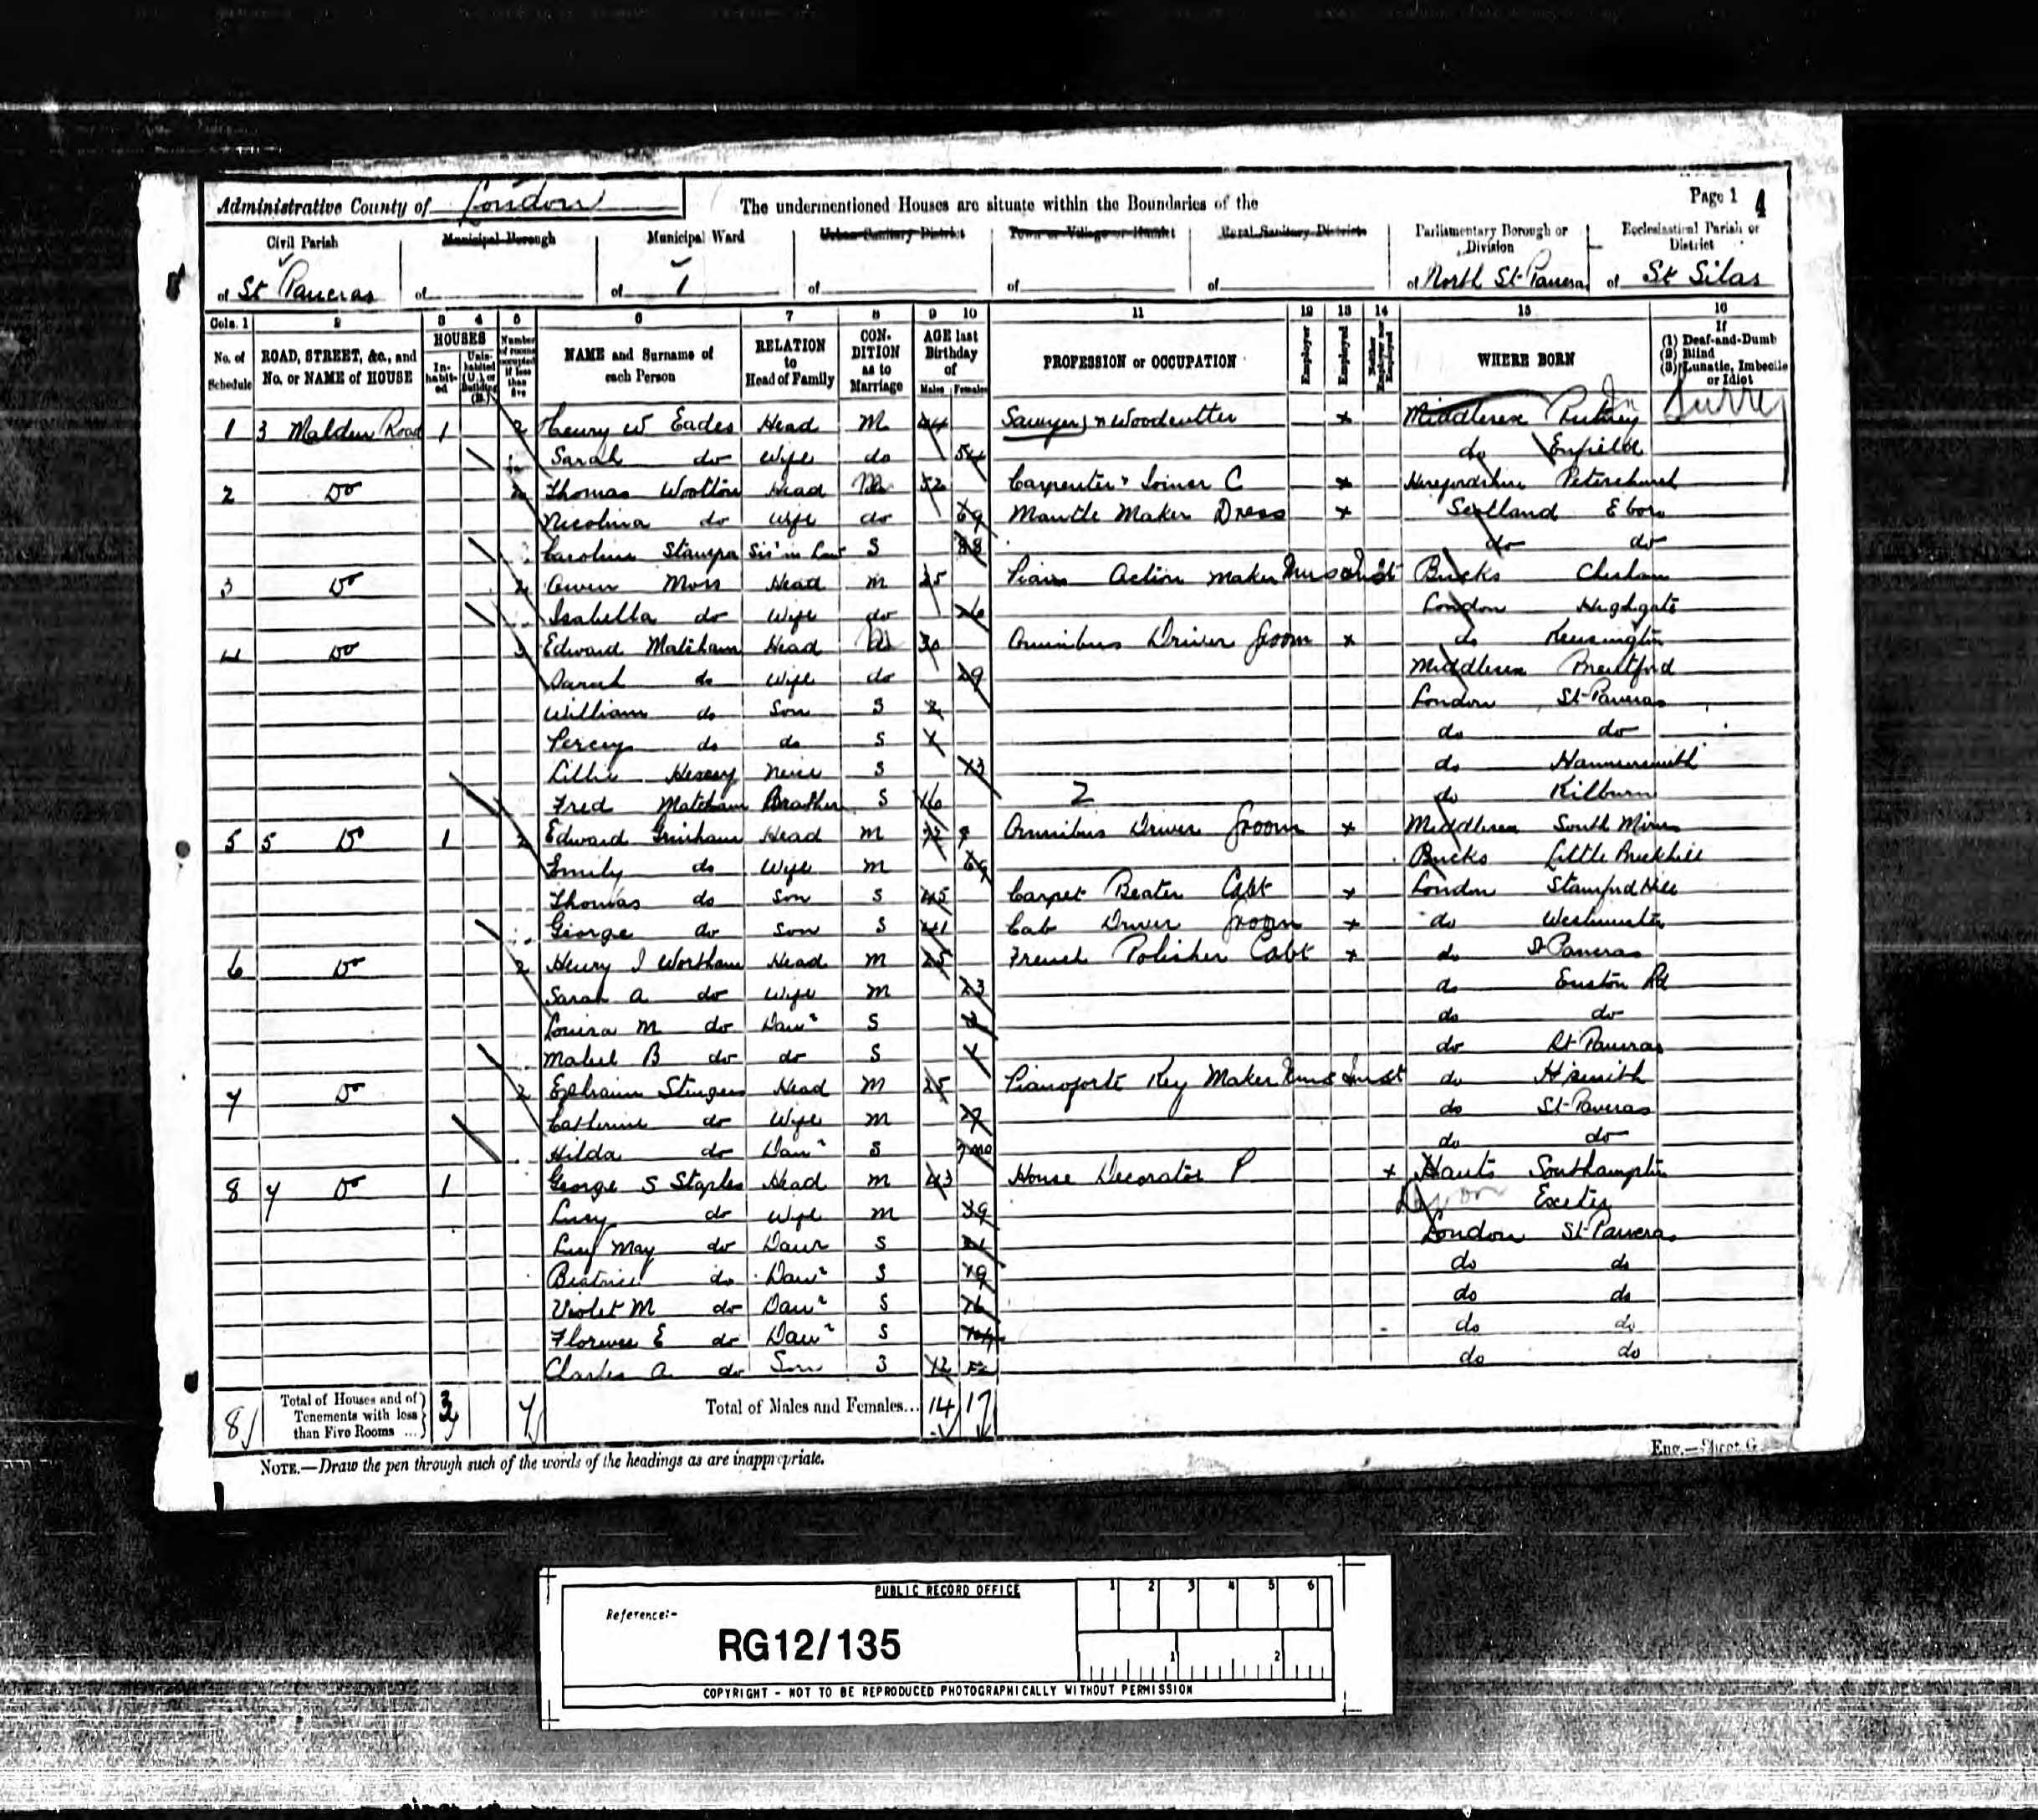 Administrative County of London
The undermentioned Houses are situate within the Boundaries of the
Page 1
4
Civil Parish of St Pancras
Municipal Borough of
Municipal Ward of 1
Urban Sanitary District of
Town or Village or Hamlet of
Rural Sanitary District of
Parliamentary Borough or Division of North St Pancras
Ecclesiastical Parish or District of St Silas
Cols. 1 2 3 4 5 6 7 8 9 10 11 12 13 14 15 16
No. of Schedule
ROAD, STREET, &c., and No. or NAME of HOUSE
HOUSES
Inhabited
Uninhabited (U.), or Building (B.)
Number of rooms occupied if less than five
NAME and Surname of each Person
RELATION to Head of Family
CONDITION as to Marriage
AGE last Birthday of
Males Females
PROFESSION or OCCUPATION
Employer
Employed
Neither Employer nor Employed
WHERE BORN
If (1) Deaf-and-Dumb (2) Blind (3) Lunatic, Imbecile or Idiot
1 3 Malden Road 1 2 Henry W Eades Head M 44 Sawyer Woodcutter x Middlesex Putney Surrey
Sarah do Wife do 54 do Enfield
2 Do 2 Thomas Wootton Head M 52 Carpenter & Joiner C x Herefordshire Peterchurch
Nicolina do Wife do 69 Mantle Maker Dress x Scotland
Caroline Sis in Law S do do
3 Do 2 Owen Moss Head M 25 Piano Action Maker Mus Inst Bucks Chesham
Isabella do Wife do 26 London Highgate
4 Do 3 Edward Head M 30 Omnibus Driver Groom x do Kensington
Sarah do Wife do 29 Middlesex Brentford
William do Son S 2 London St Pancras
Percy do do S 1 do do
Lillie Neice S 13 do Hammersmith
Fred Matcham Brother S 16 do Kilburn
5 5 Do 1 2 Edward Grinham Head M Omnibus Driver Groom x Middlesex South Mims
Emily do Wife M 69 Bucks Little Brickhill
Thomas do Son S 45 Carpet Beater Cabt x London Stamford Hill
George do Son S 41 Cab Driver Groom x do Westminster
6 Do 2 Henry J Wortham Head M 25 French Polisher Cabt x do St Pancras
Sarah A do Wife M 23 do Euston Rd
Louisa M do Daur S 2 do do
Mabel B do do S 1 do St Pancras
7 Do 2 Ephraim Head M 25 Pianoforte Key Maker Mus Inst do H'smith
Catherine do Wife M 27 do St Pancras
Hilda do Daur S 7mo do do
8 7 Do 1 George S Staples Head M 43 House Decorator P x Hants Southampton
Lucy do Wife M 39 Devon Exeter
Lucy May do Daur S 21 London St Pancras
Beatrice do Daur S 19 do do
Violet M do Daur S 16 do do
Florence E do Daur S 14 do do
Charles A do Son S 12 do do
8 Total of Houses and of Tenements with less than Five Rooms ... 3 7 Total of Males and Females... 14 17
NOTE.—Draw the pen through such of the words of the headings as are inappropriate.
Eng.—Sheet G
PUBLIC RECORD OFFICE
1 2 3 4 5 6
Reference:-
RG12/135
1 2
COPYRIGHT - NOT TO BE REPRODUCED PHOTOGRAPHICALLY WITHOUT PERMISSION